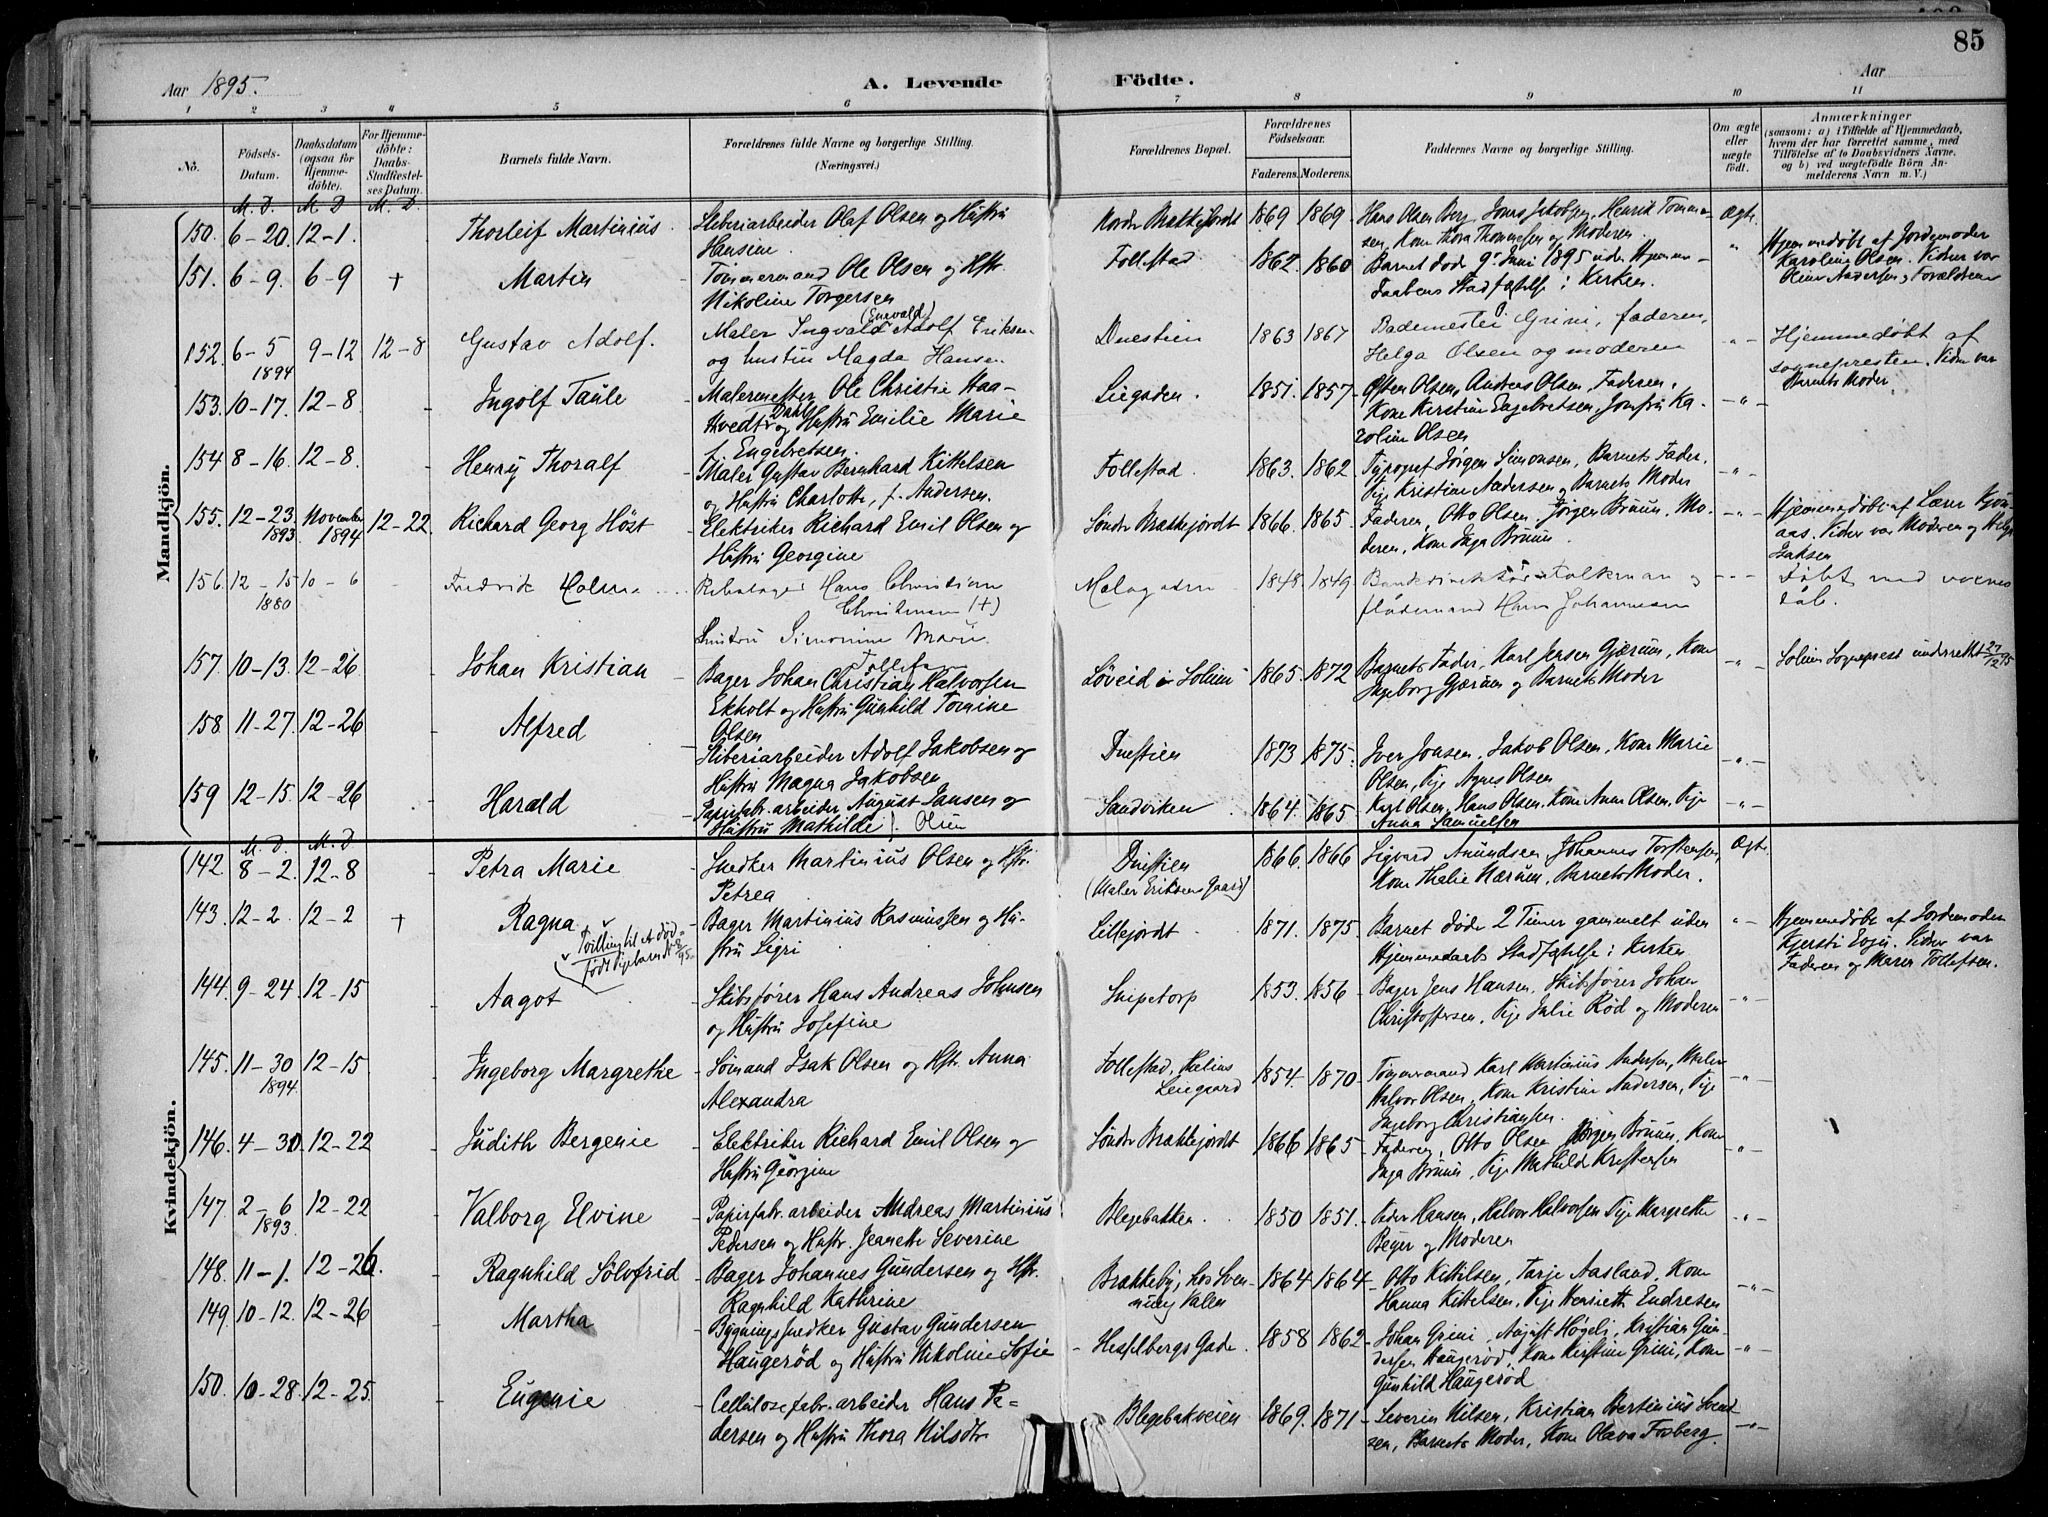 85
Aar 1895.
A. Levende Födte.
Aar
1 2 3 4 5 6 7 8 9 10 11
No.
Födsels-Datum.
Daabsdatum (ogsaa for Hjemmedöbte).
For Hjemmedöbte: Daabs-Stadfæstelses Datum.
Barnets fulde Navn.
Forældrenes fulde Navne og borgerlige Stilling.
(Næringsvei.)
Forældrenes Bopæl.
Forældrenes Födselsaar.
Faderens. Moderens.
Faddernes Navne og borgerlige Stilling.
Om ægte eller uægte födt.
Anmærkninger
(saasom: a) i Tilfælde af Hjemmedaab, hvem der har forrettet samme, med Tilföielse af to Daabsvidners Navne, og b) ved uægtefödte Börn Anmelderens Navn m. V.)
M. D. M. D M. D.
Mandkjön.
150. 6-20. 12-1. Thorleif Martinius. Sliberiarbeider Olaf Olsen og Hustru Nordre Brekkejordet 1869 1869 Hans Olsen Berg, Jonas Jakobsen, Henrik Tomme- Ægte.
Hansine sen, Kone Thora Thommesen og Moderen.
151. 6-9. 6-9 + Martin Tømmermand Ole Olsen og Hstr. Follestad 1862. 1860 Barnet døde 9de Juni 1895 uden Hjemme- " Hjemmedøbt af Jordemoder
Nikoline Torgersen daabens Stadfæstelse i Kirken. Karoline Olsen. Vidner var
(Enevald) Oline Andersen, Forældrene
152. 6-5 9-12 12-8 Gustav Adolf. Maler Ingvald Adolf Eriksen Duestien 1863 1867 Bademester Grini, faderen, " Hjemmedøbt af
1894 og hustru Magda Hansen. Helga Olsen og moderen sognepresten. Vidne var
153. 10-17. 12-8 Ingolf Taule Malermester Ole Christie Haa- Liegaden. 1851. 1857. Osten Olsen, Andreas Olsen, Faderen, -"- Barnets Moder.
tvedt Dahl og Hustru Emilie Marie Kone Kirstine Engebretsen, Jomfru Ka-
f. Engebretsen. roline Olsen
154 8-16. 12-8. Henry Thoralf Maler Gustav Bernhard Kittelsen Follestad. 1863. 1862 Typograf Jørgen Simonsen, Barnets Fader, "
og Hustru Charlotte, f. Andersen. Pige Kristine Andersen og Barnets Moder
155. 12-23. November 12-22. Richard Georg Höst Elektriker Richard Emil Olsen og Søndre Brekkejordet 1866. 1865. Faderen, Otto Olsen, Jørgen Bruun, Mo- -"- Hjemmedøbt af Lærer
1893 1894 Hustru Georgine deren, Kone Inga Bruun. Vidner var Moderen og
156. 12-15 10-6 Fredrik Holm Hans Christian 1848. 1849 og Døbt med voxnes
1880 Christensen (+) Hans Johannesen daab.
Simonine Marie
Tollefsen
157. 10-13. 12-26 Johan Kristian Bager Johan Christian Halvorsen Løveid i Solum 1865. 1872 Barnets Fader, Karl Jensen Gjærum, Kone " Solum Sognepræst underrettet 27/12 95
Ekholt og Hustru Gunhild Tomine Ingeborg Gjærum og Barnets Moder
Olsen
158. 11-27. 12-26 Alfred Sliberiarbeider Adolf Jakobsen og Duestien 1873 1875. Iver Jonsen, Jakob Olsen, Kone Marie -"-
Hustru Magna Jakobsen Olsen, Pige Agnes Olsen
159 12-15. 12-26 Harald Papirfabr. arbeider August Jansen og Sandviken 1864. 1865 Karl Olsen, Hans Olsen, Kone Anne Olsen, Pige -"-
Hustru Mathilde f. Olsen Anna Samuelsen
M. D. M. D
Kvindekjön.
142. 8-2. 12-8 Petra Marie Snedker Martinius Olsen og Hstr. Duestien 1866. 1866 Sigvard Amundsen, Johannes Torstensen, Ægte.
Petrea (Maler Eriksens Gaard) Kone Thalie Nærum, Barnets Moder.
143. 12-2. 12-2 + Ragna Bager Martinius Rasmussen og Hu- Lillejordet 1871. 1875. Barnet døde 2 Timer gammelt uden " Hjemmedøbt af Jordemoder
stru Sigri Hjemmedaabs Stadfæstelse i Kirken Kjersti Evju. Vidner var
(Tvilling til A død-født Pigebarn) Faderen og Maren Tollefsen.
144. 9-24 12-15 Aagot Skibsfører Hans Andreas Johnsen Snipetorp 1853. 1856 Bager Jens Hansen, Skibsfører Johan -"-
og Hustru Josefine Christoffersen, Pige Julie Rød og Moderen
145. 11-30 12-15 Ingeborg Margrethe Sømand Isak Olsen og Hstr. Anna Follestad, Helius 1854. 1870. Tømmermand Karl Martinius Andersen, Maler -"-
1894. Alexandra Leiegaard Halvor Olsen, Kone Kristine Andersen, Pige
Ingeborg Christiansen.
146. 4-30. 12-22 Judith Bergenie Elektriker Richard Emil Olsen og Søndre Brekkejordet 1866 1865 Faderen, Otto Olsen, Jørgen Bruun, Kone -"-
Hustru Georgine Inga Bruun, Pige Mathilde Kristensen
147. 2-6 12-22 Valborg Elvine Papirfabr. arbeider Andreas Martinius Blegebakken. 1850 1851. Peder Hansen, Halvor Halvorsen, Pige Margrethe -"-
1893. Pedersen og Hustr. Jeanette Severine Beyer og Moderen
148. 11-1. 12-26. Ragnhild Sölvfrid Bager Johannes Gundersen og Hstr. Brekkeby, hos Sven- 1864 1864 Otto Kittilsen, Tarje Aasland, Kone -"-
Ragnhild Kathrine nung Valen Hanna Kittelsen, Pige Henriette Endresen
149. 10-12. 12-26 Martha Bygningssnedker Gustav Gundersen Hesselbergs Gade. 1858 1862 Johan Grini, August Høgeli, Kristian Gun- -"-
Haugerød og Hustru Nikoline Sofie dersen Haugerød, Kone Kirstine Grini, Kone
Gunhild Haugerød
150. 10-28. 12-25. Eugenie Cellulosefabr. arbeider Hans Pe- Blegebakveien 1869. 1871 Severin Nilsen, Kristian Bertinius Svend- -"-
dersen og Hustru Thora Nilsdtr sen, Barnets Moder, Kone Olava Fosberg.